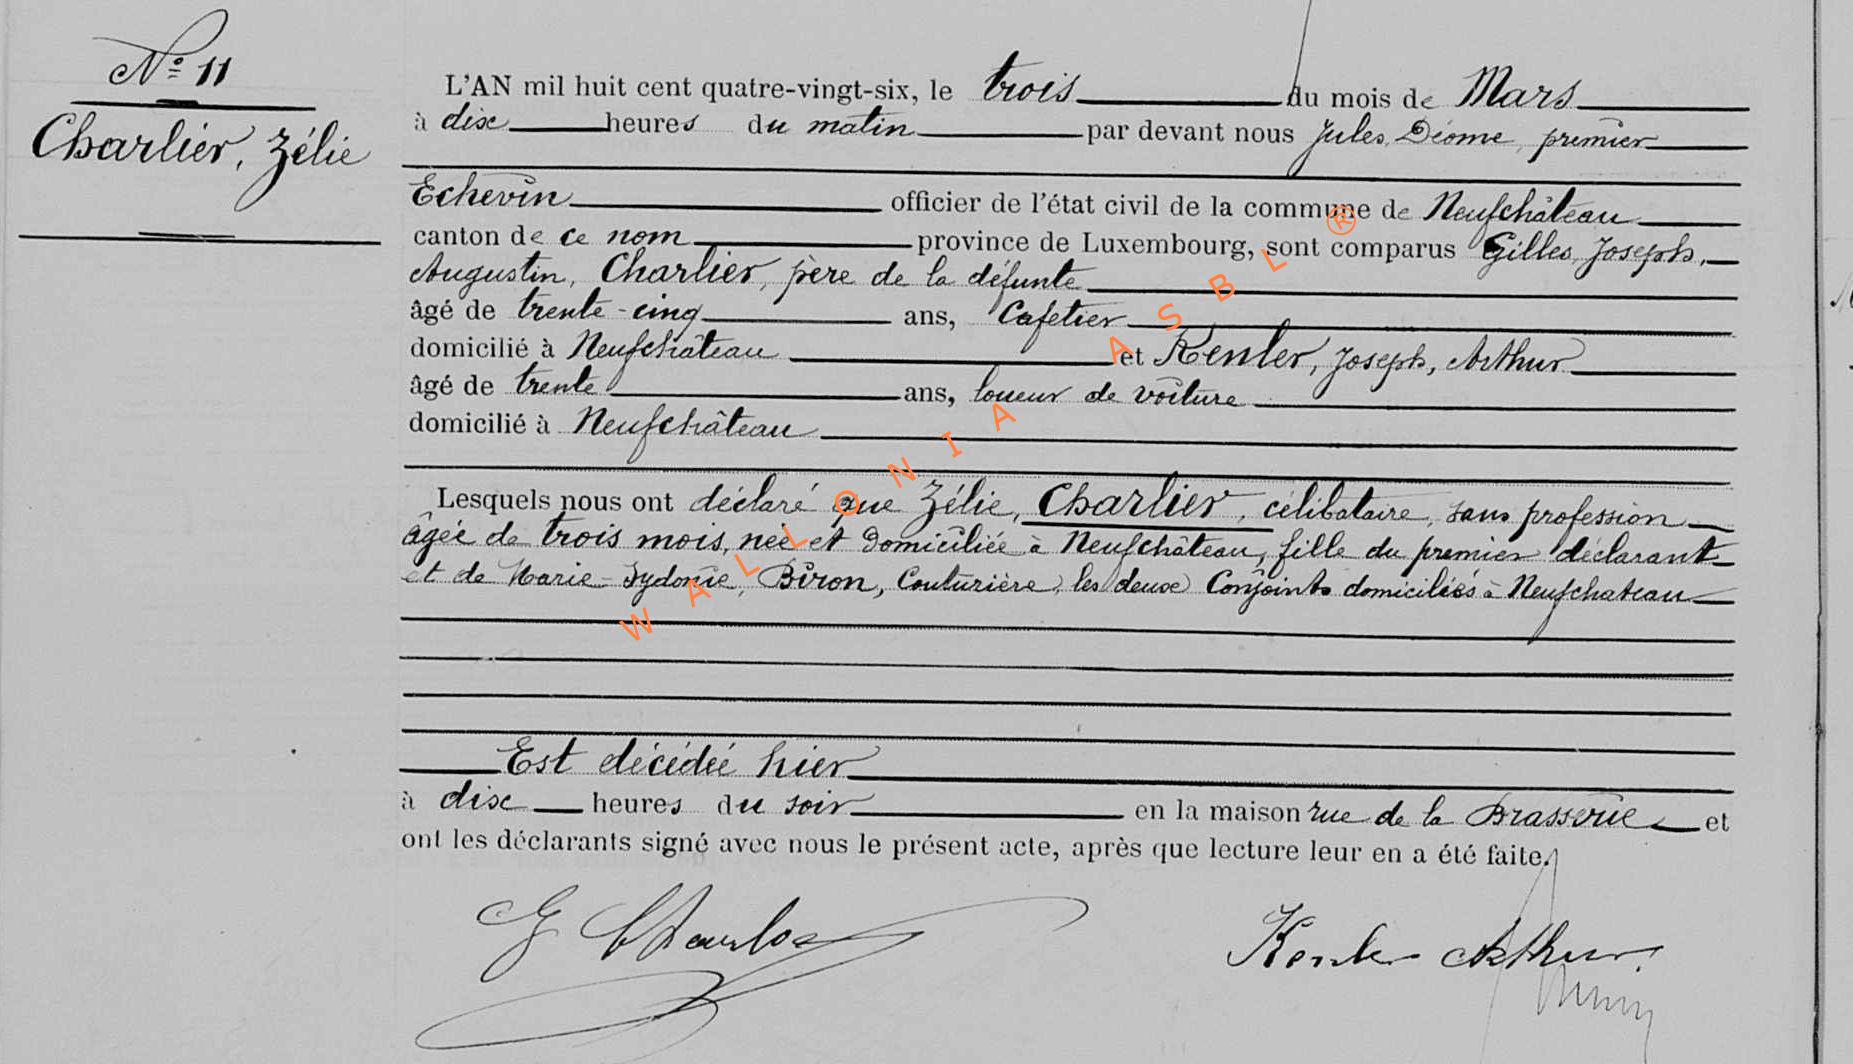 N° 11
Charlier, Zélie
L'AN mil huit cent quatre-vingt-six, le trois du mois de Mars
à dix heures du matin par devant nous Jules, Déome, premier
Echevin officier de l'état civil de la commune de Neufchâteau
canton de ce nom province de Luxembourg, sont comparus Gilles, Joseph,
Augustin, Charlier, père de la défunte
âgé de trente-cinq ans, Cafetier
domicilié à Neufchâteau et Kenler, Joseph, Arthur
âgé de trente ans, loueur de voiture
domicilié à Neufchâteau
Lesquels nous ont déclaré que Zélie, Charlier, célibataire, sans profession
âgée de trois mois, née et domiciliée à Neufchâteau, fille du premier déclarant
et de Marie-Sydonie, Biron, Couturière, les deux Conjoints domiciliés à Neufchateau
Est décédée hier
à dix heures du soir en la maison rue de la Brasserie et
ont les déclarants signé avec nous le présent acte, après que lecture leur en a été faite.
G Charlier
Kenler Arthur
WALLONIA ASBL ®